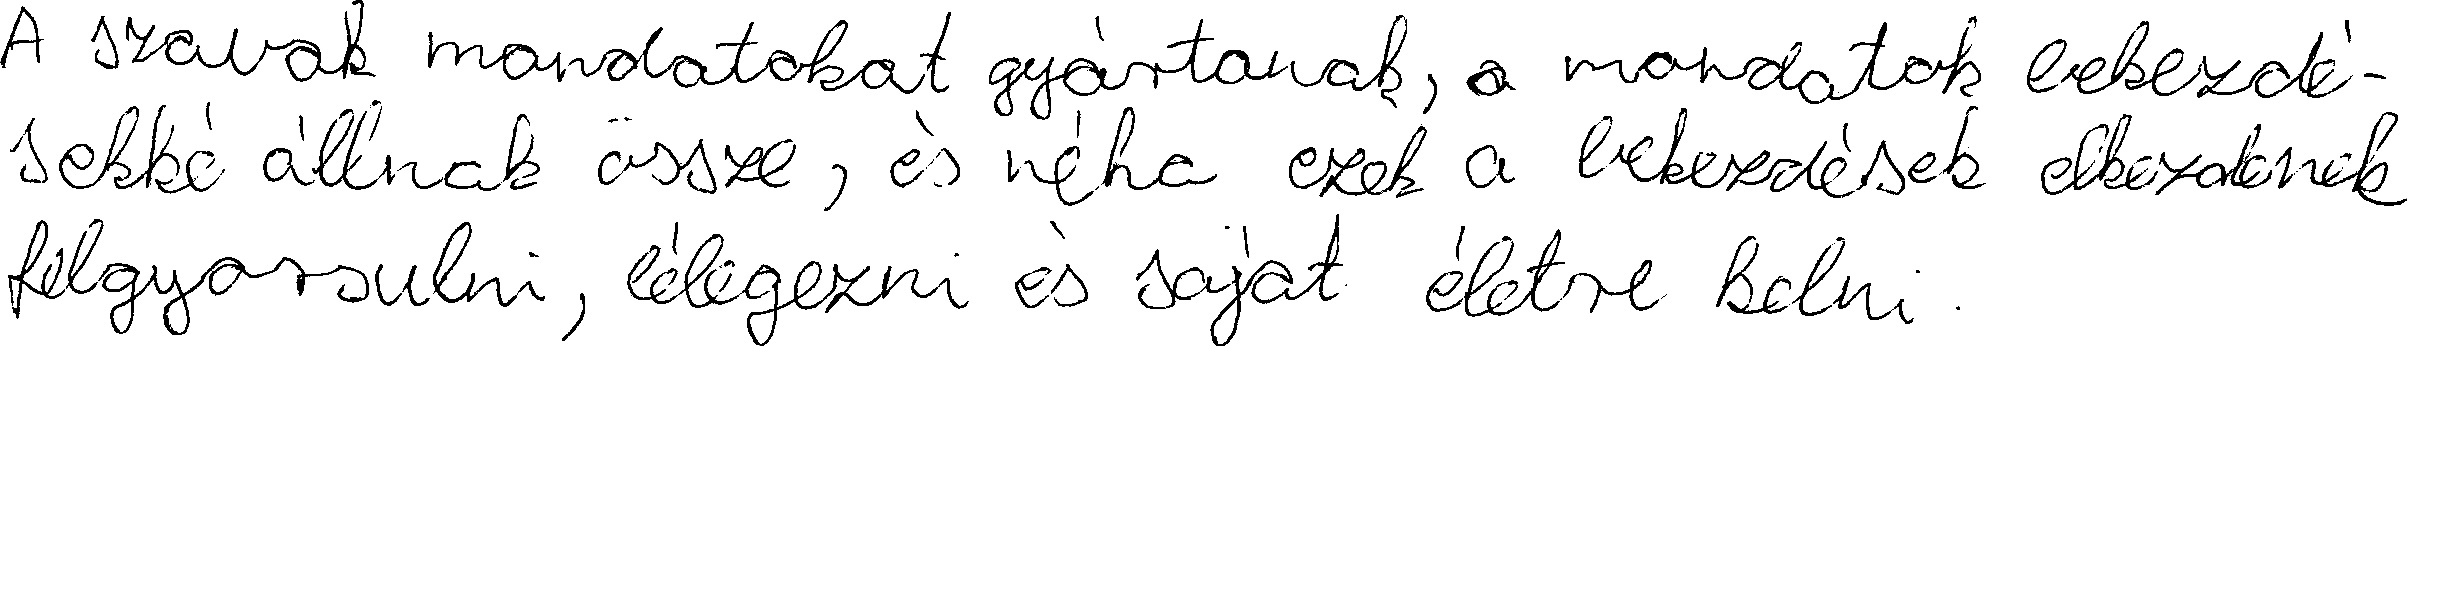 A szavak mondatokat gyártanak, a mondatok bekezdé-
sekké állnak össze, és néha ezek a bekezdések elkezdenek
felgyorsulni, lélegezni és saját életre kelni.